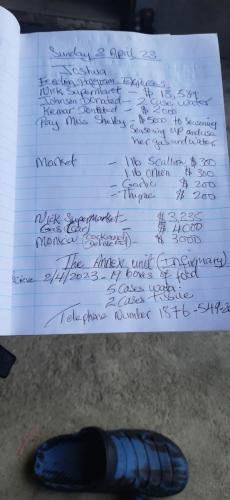 Sunday 2 April 23
Joshua
Feeding Program Expenses
Nick Supermarket - $ 13,589
Johnson Donated - 2 case water
Kemar Donated - $ 2000
Pay Miss Shelley - $500 to seasoning
Seasoning up and use
her gas and water
Market - 1 lb Scallion $ 300
1 lb onion $ 300
- Garlic $ 200
- Thyme $ 200
Nick Supermarket - $3,235
Gas (Car) - $ 4000
Monica - $ 3000
The Annex unit (Infirmary)
2/4/2023 - 19 boxes of food
5 cases water
2 cases tissue
Telephone Number 1876-549-